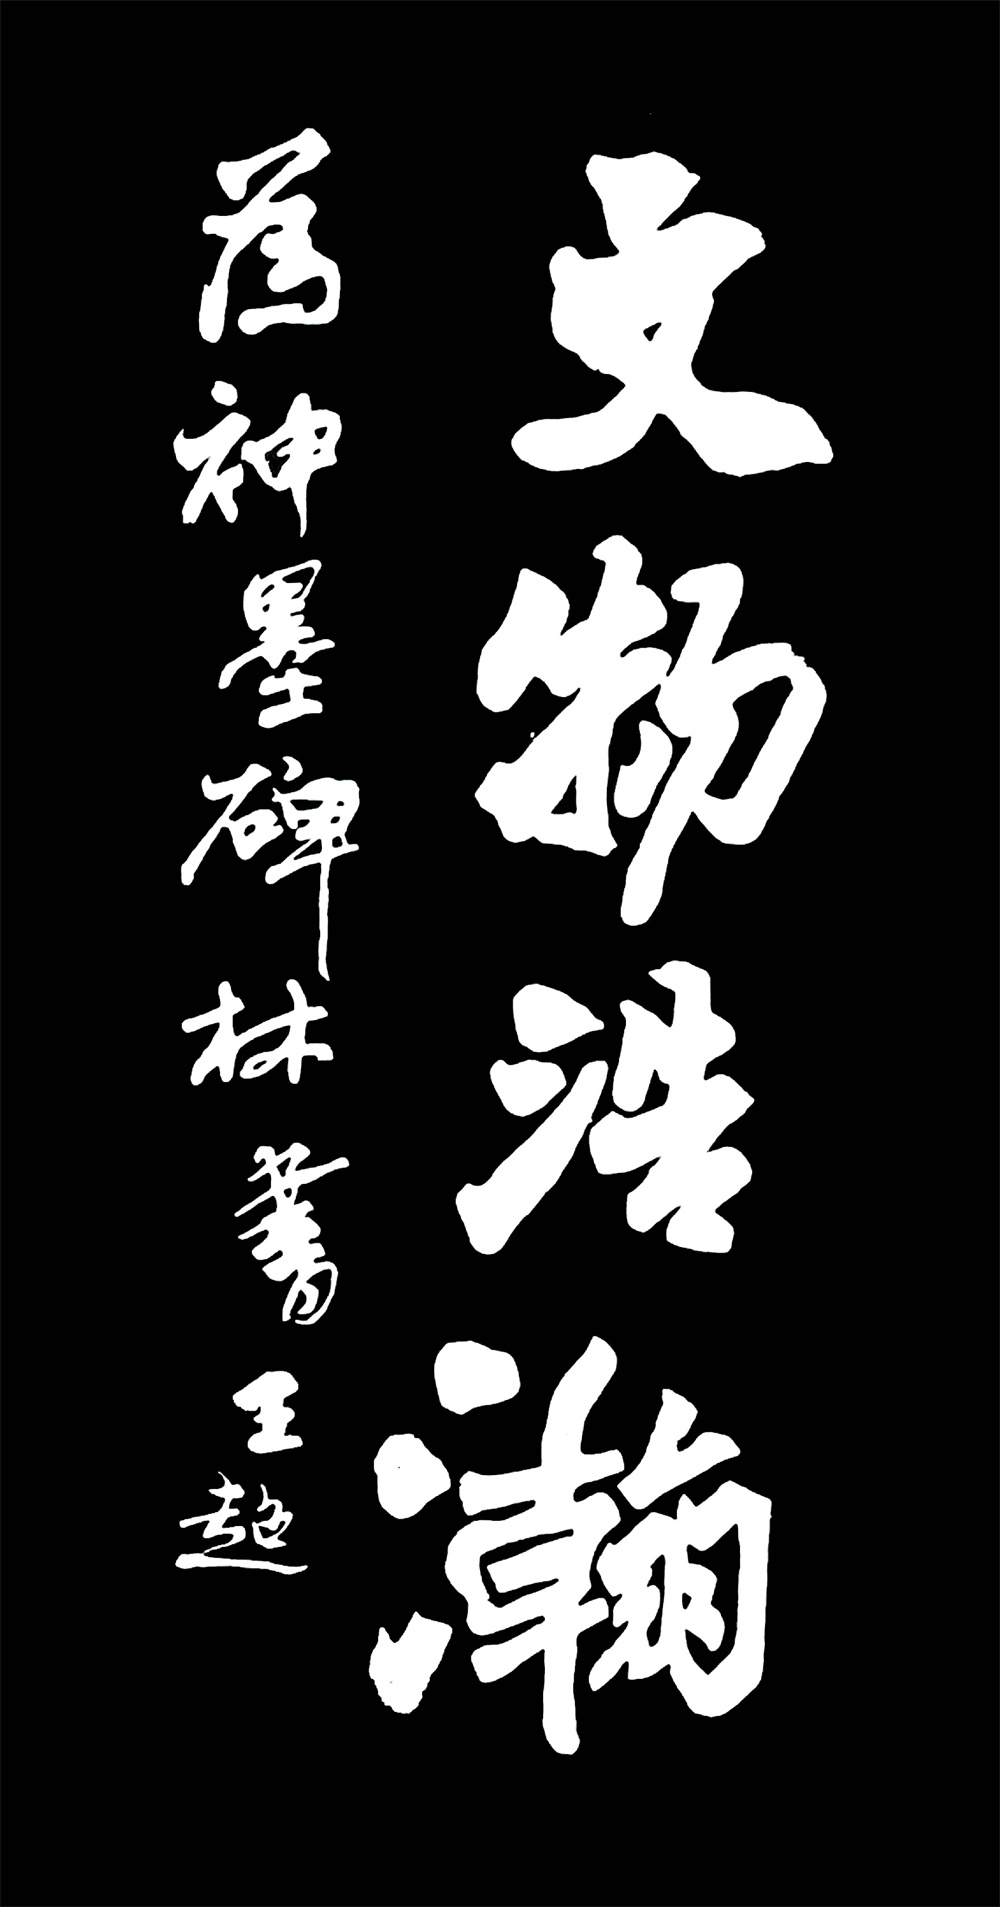 文物浩瀚
為神墨碑林書 王超